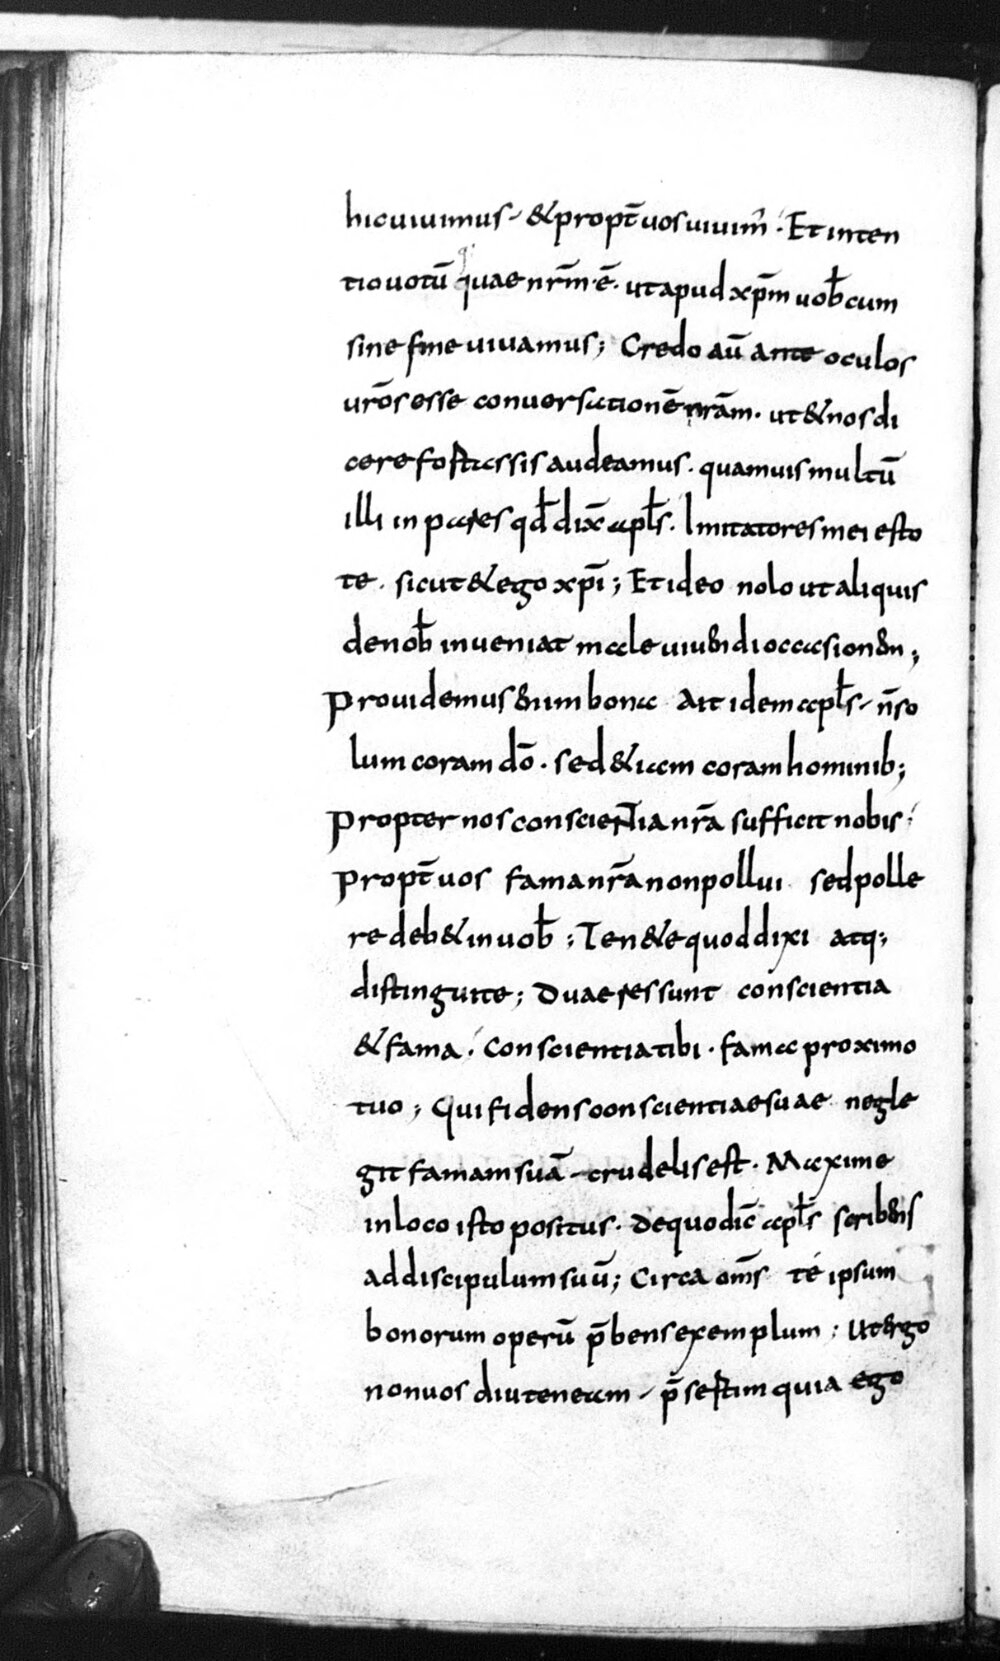 hic uiuimus. & propt̄ uos uiuim̄. Et inten
tio uotū quae nr̄m ē. ut apud xp̄m uob̄cum
sine fine uiuamus; Credo aū ante oculos
ur̄os esse conuersationē nr̄am. ut & nos di
cere fortassis audeamus. quamuis multū
illi inpares qđ dix̄ apl̄s. Imitatores mei esto
te. sicut & ego xp̄i; Et ideo nolo ut aliquis
de nob̄ inueniat male uiuendi occasionem;
Prouidemus enim bona Ait idem apl̄s. n̄ so
lum coram dō. sed & iam coram hominib;
Propter nos conscientia nr̄a sufficit nobis.
propt̄ uos fama nr̄a non pollui sed polle
re deb& in uob̄; Ten&e quod dixi atq;
distinguite; Duae res sunt conscientia
& fama. Conscientia tibi. fama proximo
tuo; Qui fidens conscientiae suae negle
git famam suā. crudelis est. Maxime
in loco isto positus. de quo dic̄ apl̄s scribens
ad discipulum suū; Circa om̄s té ipsum
bonorum operū p̄bens exemplum; Ut ergo
non uos diu teneam. p̄sertim quia ego